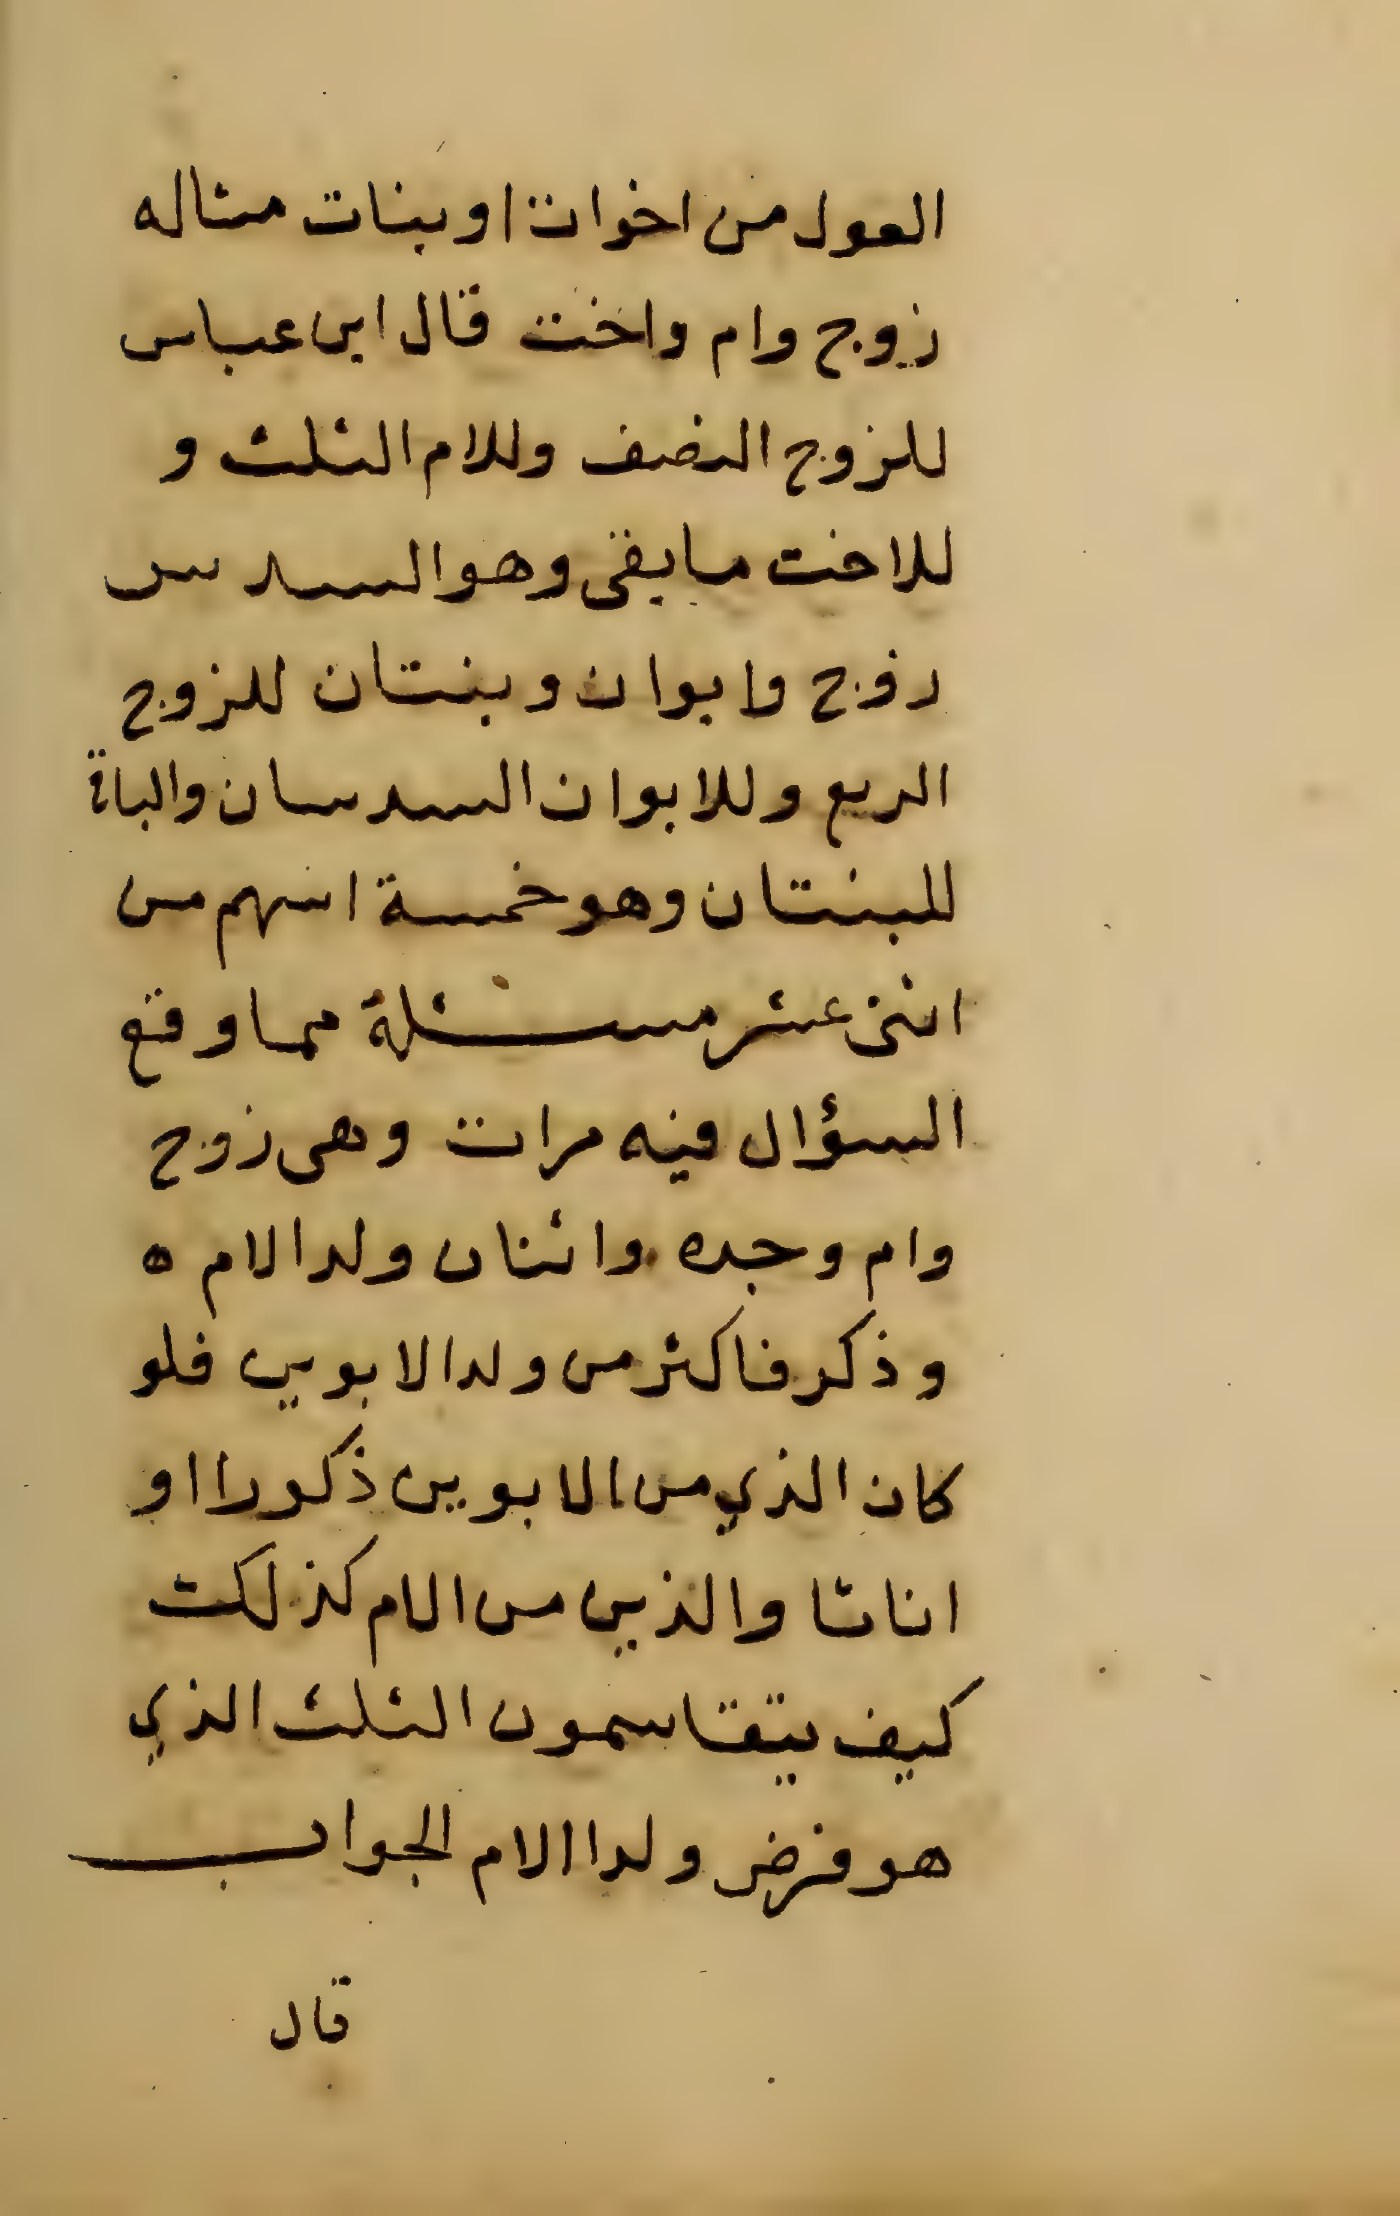 العول من اخوات او بنات مثاله
زوج وام واخت قال ابن عباس
للزوج النصف وللام الثلث و
للاخت ما يبقى وهو السدس
زوج وابوان وبنتان للزوج
الربع وللابوان السدسان والباقي
للبنتان وهو خمسة اسهم من
اثنى عشر مسئلة مما وقع
السؤال فيه مرات وهى زوج
وام وجده واثنان ولدا الام ه
وذكر فاكثر من ولدا الابوين فلو
كان الذي من الابوين ذكورا او
اناثا والذين من الام كذلك
كيف يتقاسمون الثلث الذي
هو فرض ولدا الام الجواب
قال